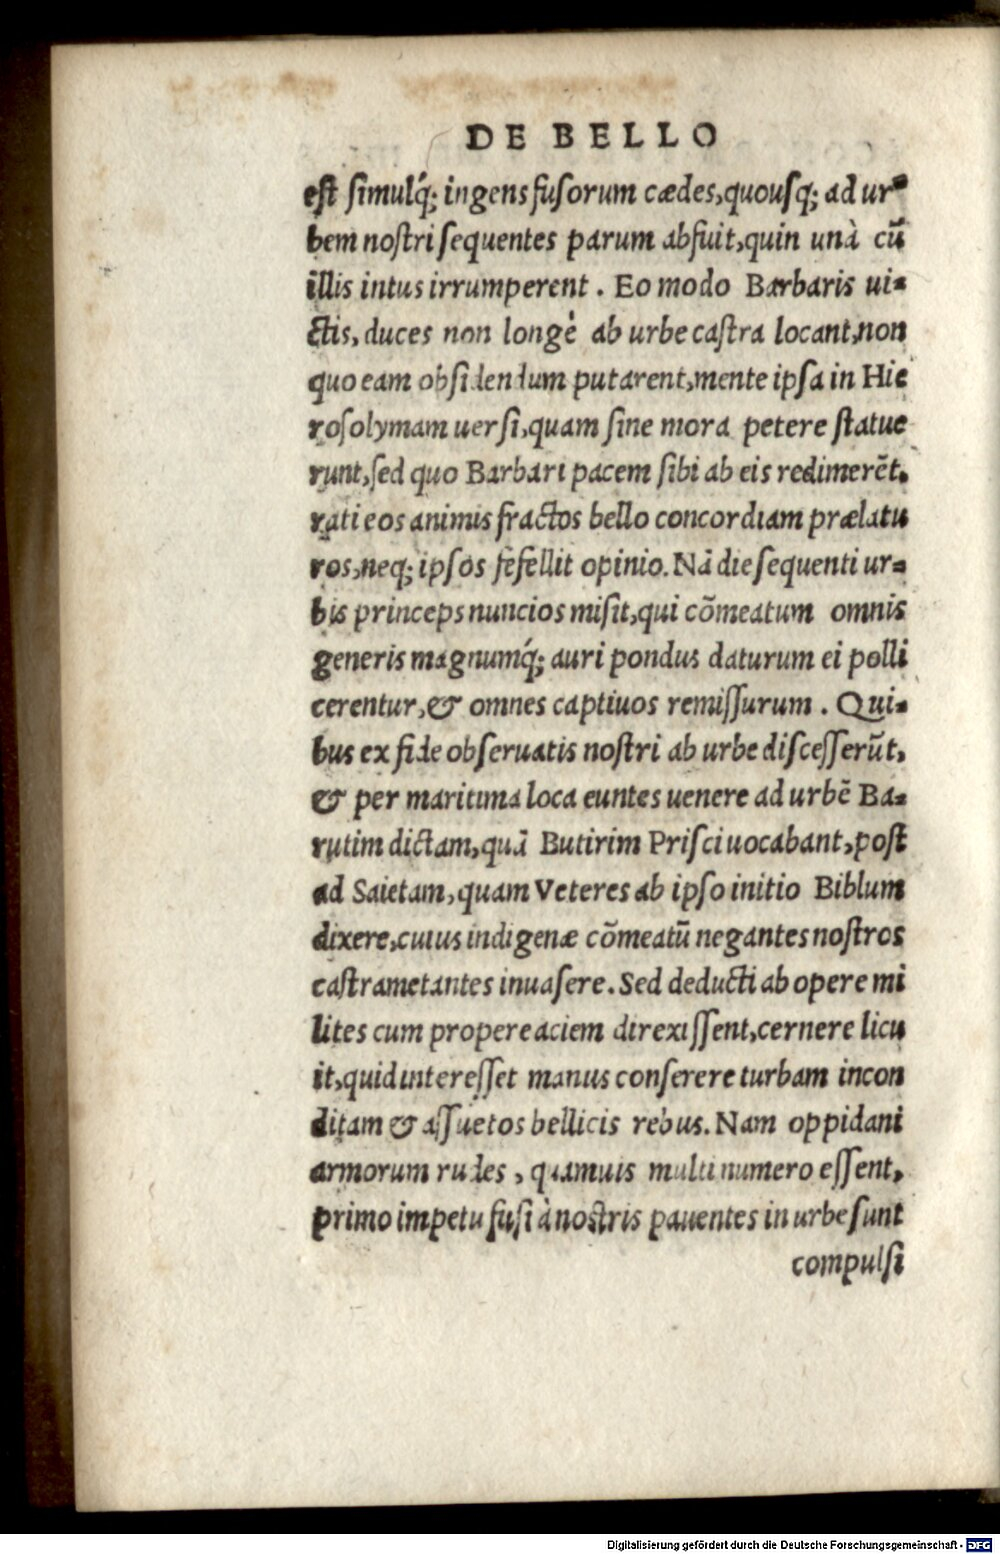 DE BELLO
est simulq́; ingens fusorum cædes, quousq; ad ur-
bem nostri sequentes parum abfuit, quin unà cū
illis intus irrumperent. Eo modo Barbaris ui-
ctis, duces non longè ab urbe castra locant, non
quo eam obsidendum putarent, mente ipsa in Hie
rosolymam uersi, quam sine mora petere statue
runt, sed quo Barbari pacem sibi ab eis redimerēt.
rati eos animis fractos bello concordiam prælatu
ros, neq; ipsos fefellit opinio. Nā die sequenti ur-
bis princeps nuncios misit, qui cōmeatum omnis
generis magnumq́; auri pondus daturum ei polli
cerentur, & omnes captiuos remissurum. Qui-
bus ex fide obseruatis nostri ab urbe discesserūt,
& per maritima loca euntes uenere ad urbē Ba-
rutim dictam, quā Butirim Prisci uocabant, post
ad Saietam, quam Veteres ab ipso initio Biblum
dixere, cuius indigenæ cōmeatū negantes nostros
castrametantes inuasere. Sed deducti ab opere mi
lites cum propere aciem direxissent, cernere licu
it, quid interesset manus conserere turbam incon
ditam & assuetos bellicis rebus. Nam oppidani
armorum rudes, quamuis multi numero essent,
primo impetu fusi à nostris pauentes in urbe sunt
compulsi
Digitalisierung gefördert durch die Deutsche Forschungsgemeinschaft - DFG